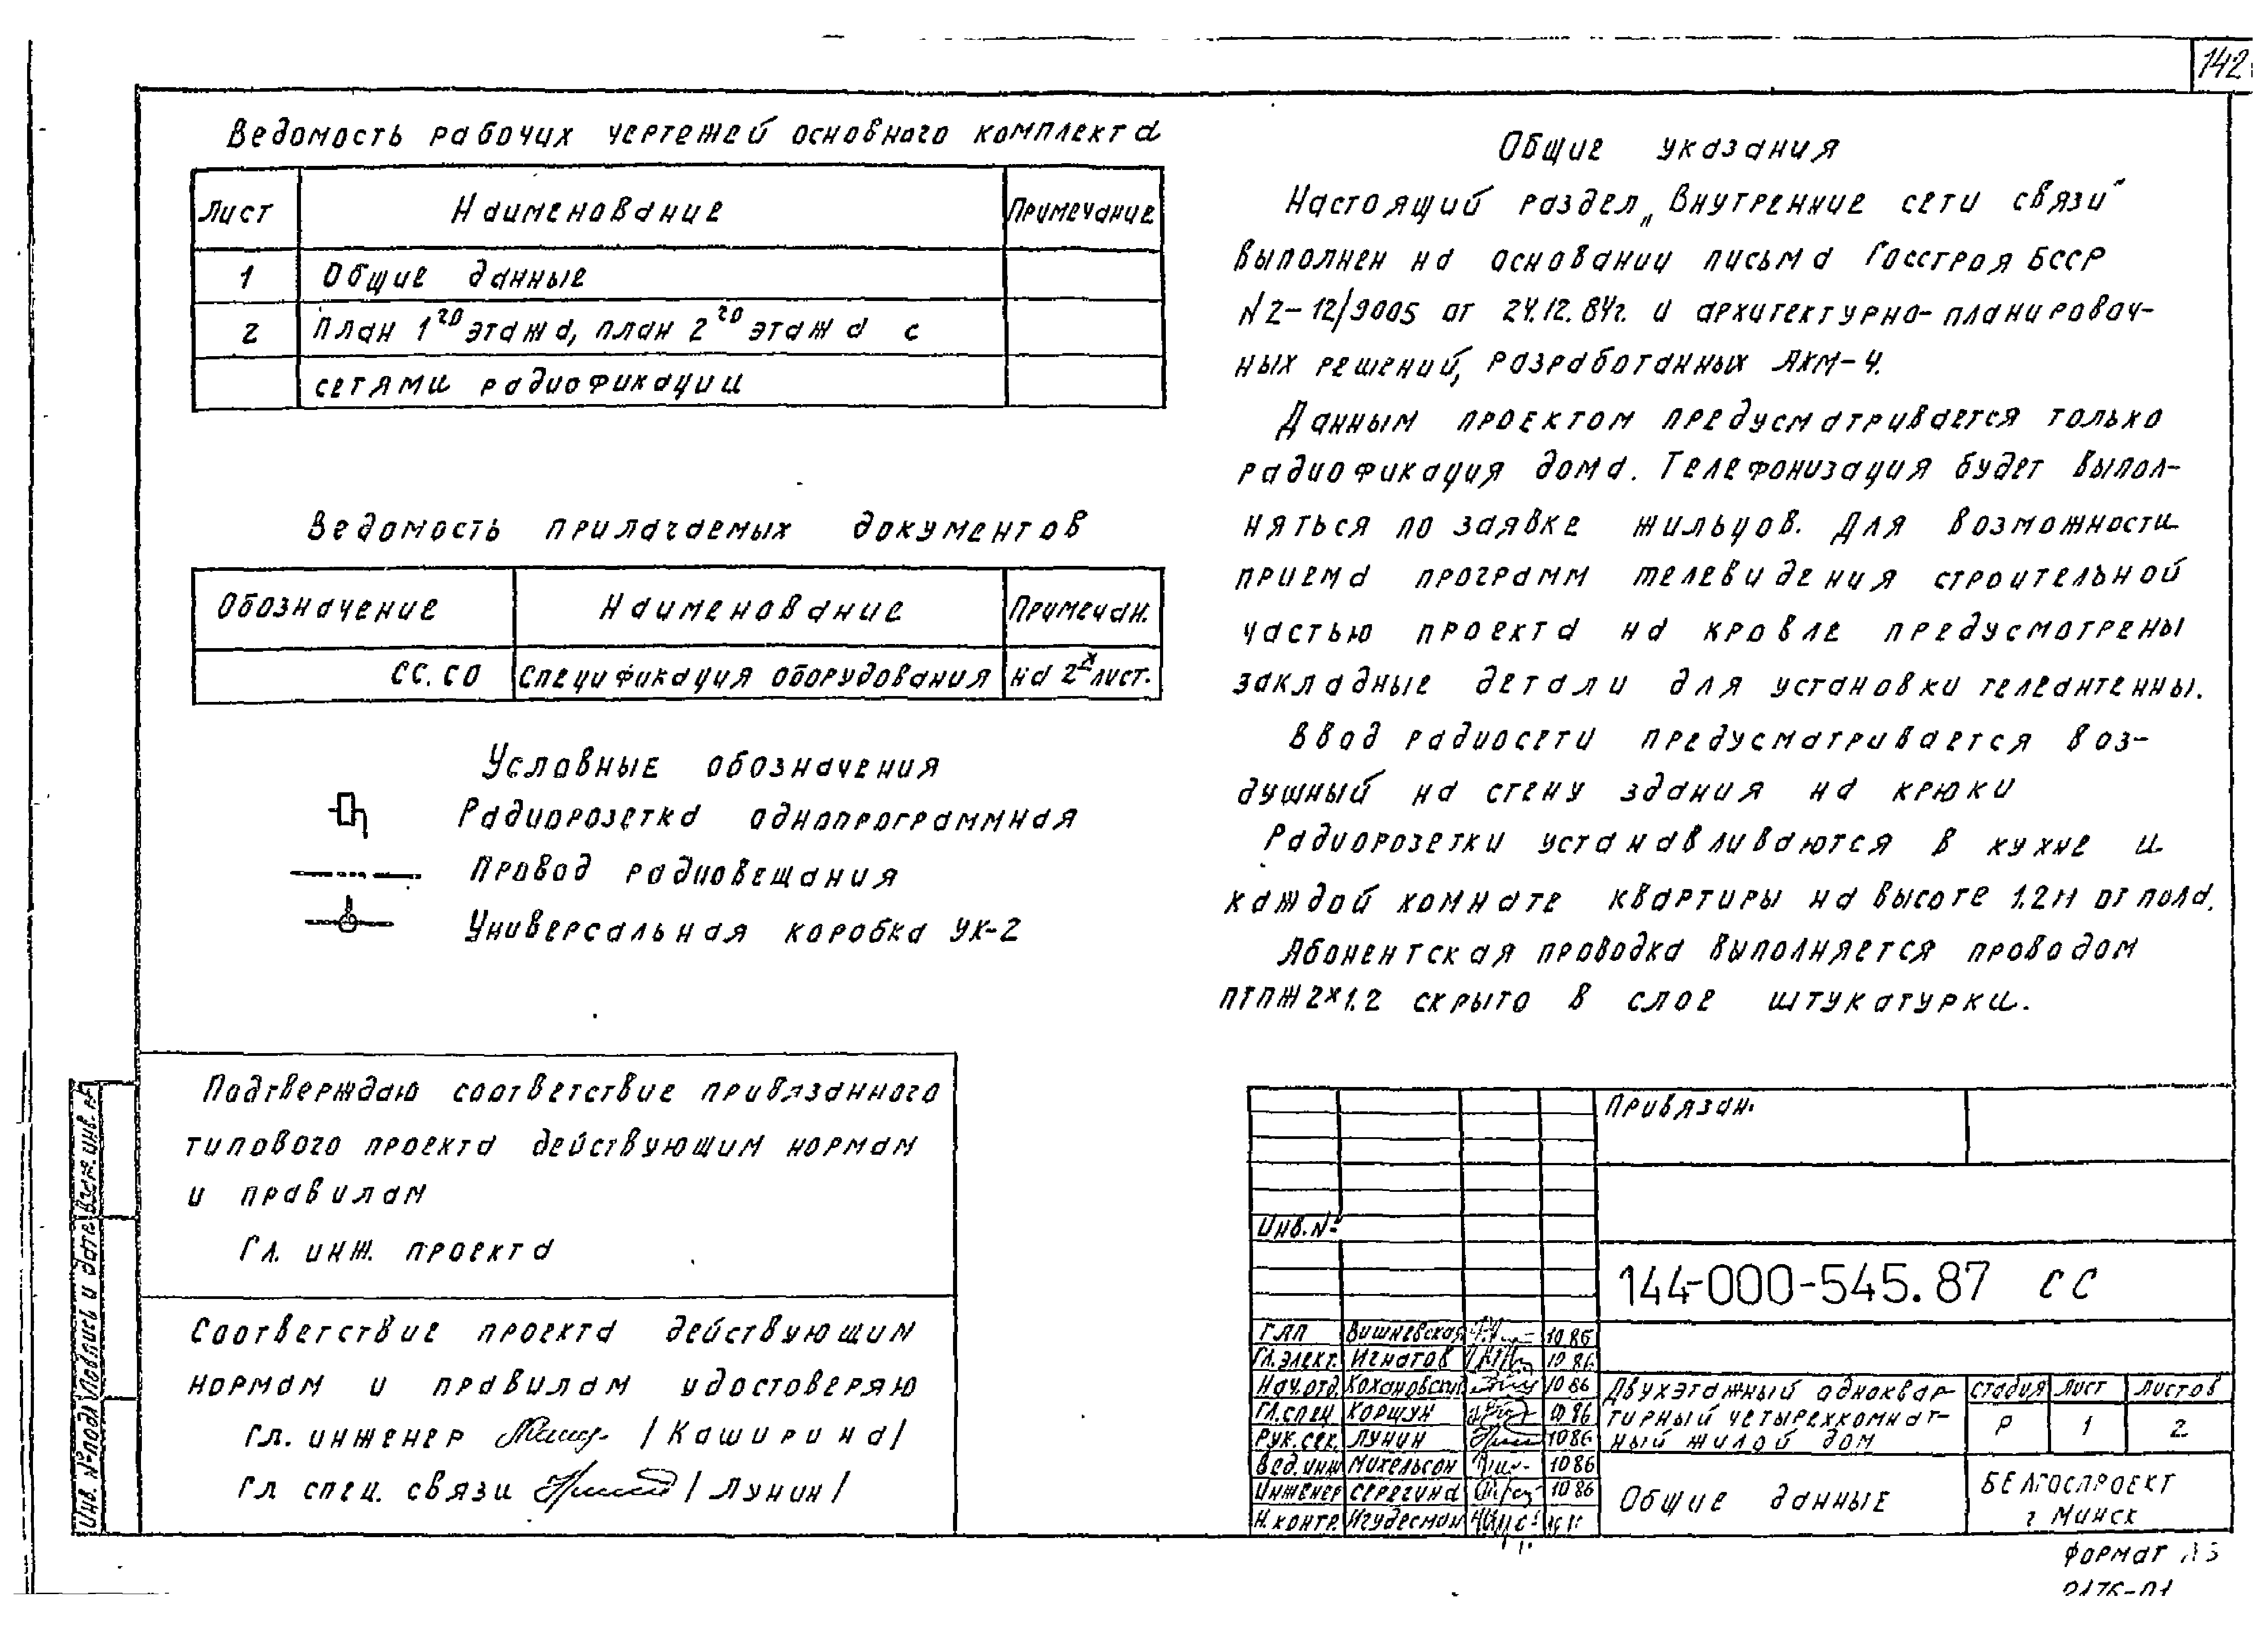 142
Ведомость рабочих чертежей основного комплекта
Лист Наименование Примечание
1 Общие данные
2 План 1го этажа, план 2го этажа с
сетями радиофикации
Ведомость прилагаемых документов
Обозначение Наименование Примечан.
СС.СО Спецификация оборудования на 2х лист.
Условные обозначения
Радиорозетка однопрограммная
Провод радиовещания
Универсальная коробка УК-2
Общие указания
Настоящий раздел „Внутренние сети связи"
выполнен на основании письма Госстроя БССР
N2-12/9005 от 24.12.84г. и архитектурно-планировоч-
ных решений, разработанных АКМ-4.
Данным проектом предусматривается только
радиофикация дома. Телефонизация будет выпол-
няться по заявке жильцов. Для возможности
приема программ телевидения строительной
частью проекта на кровле предусмотрены
закладные детали для установки телеантенны.
Ввод радиосети предусматривается воз-
душный на стену здания на крюки
Радиорозетки устанавливаются в кухне и
каждой комнате квартиры на высоте 1.2м от пола.
Абонентская проводка выполняется проводом
ПТПЖ2х1.2 скрыто в слое штукатурки.
Подтверждаю соответствие привязанного
типового проекта действующим нормам
и правилам
Гл. инж. проекта
Соответствие проекта действующим
нормам и правилам удостоверяю
Гл. инженер /Каширина/
Гл спец. связи /Лунин/
Инв. № подл Подпись и дата Взам. инв. №
Привязан:
Инв. №
144-000-545.87 СС
ГАП Вишневская 10.86
Гл. элект. Игнатов 10 86
Нач. отд. Кохановский 10 86
Гл. спец Коршун 10 86
Рук. сек. Лунин 10 86
Вед. инж Михельсон 10 86
Инженер Серегина 10 86
Н. контр. Игудесман
Двухэтажный одноквар-
тирный четырехкомнат-
ный жилой дом
Стадия Лист Листов
Р 1 2
Общие данные
БЕЛГОСПРОЕКТ
г Минск
Формат А3